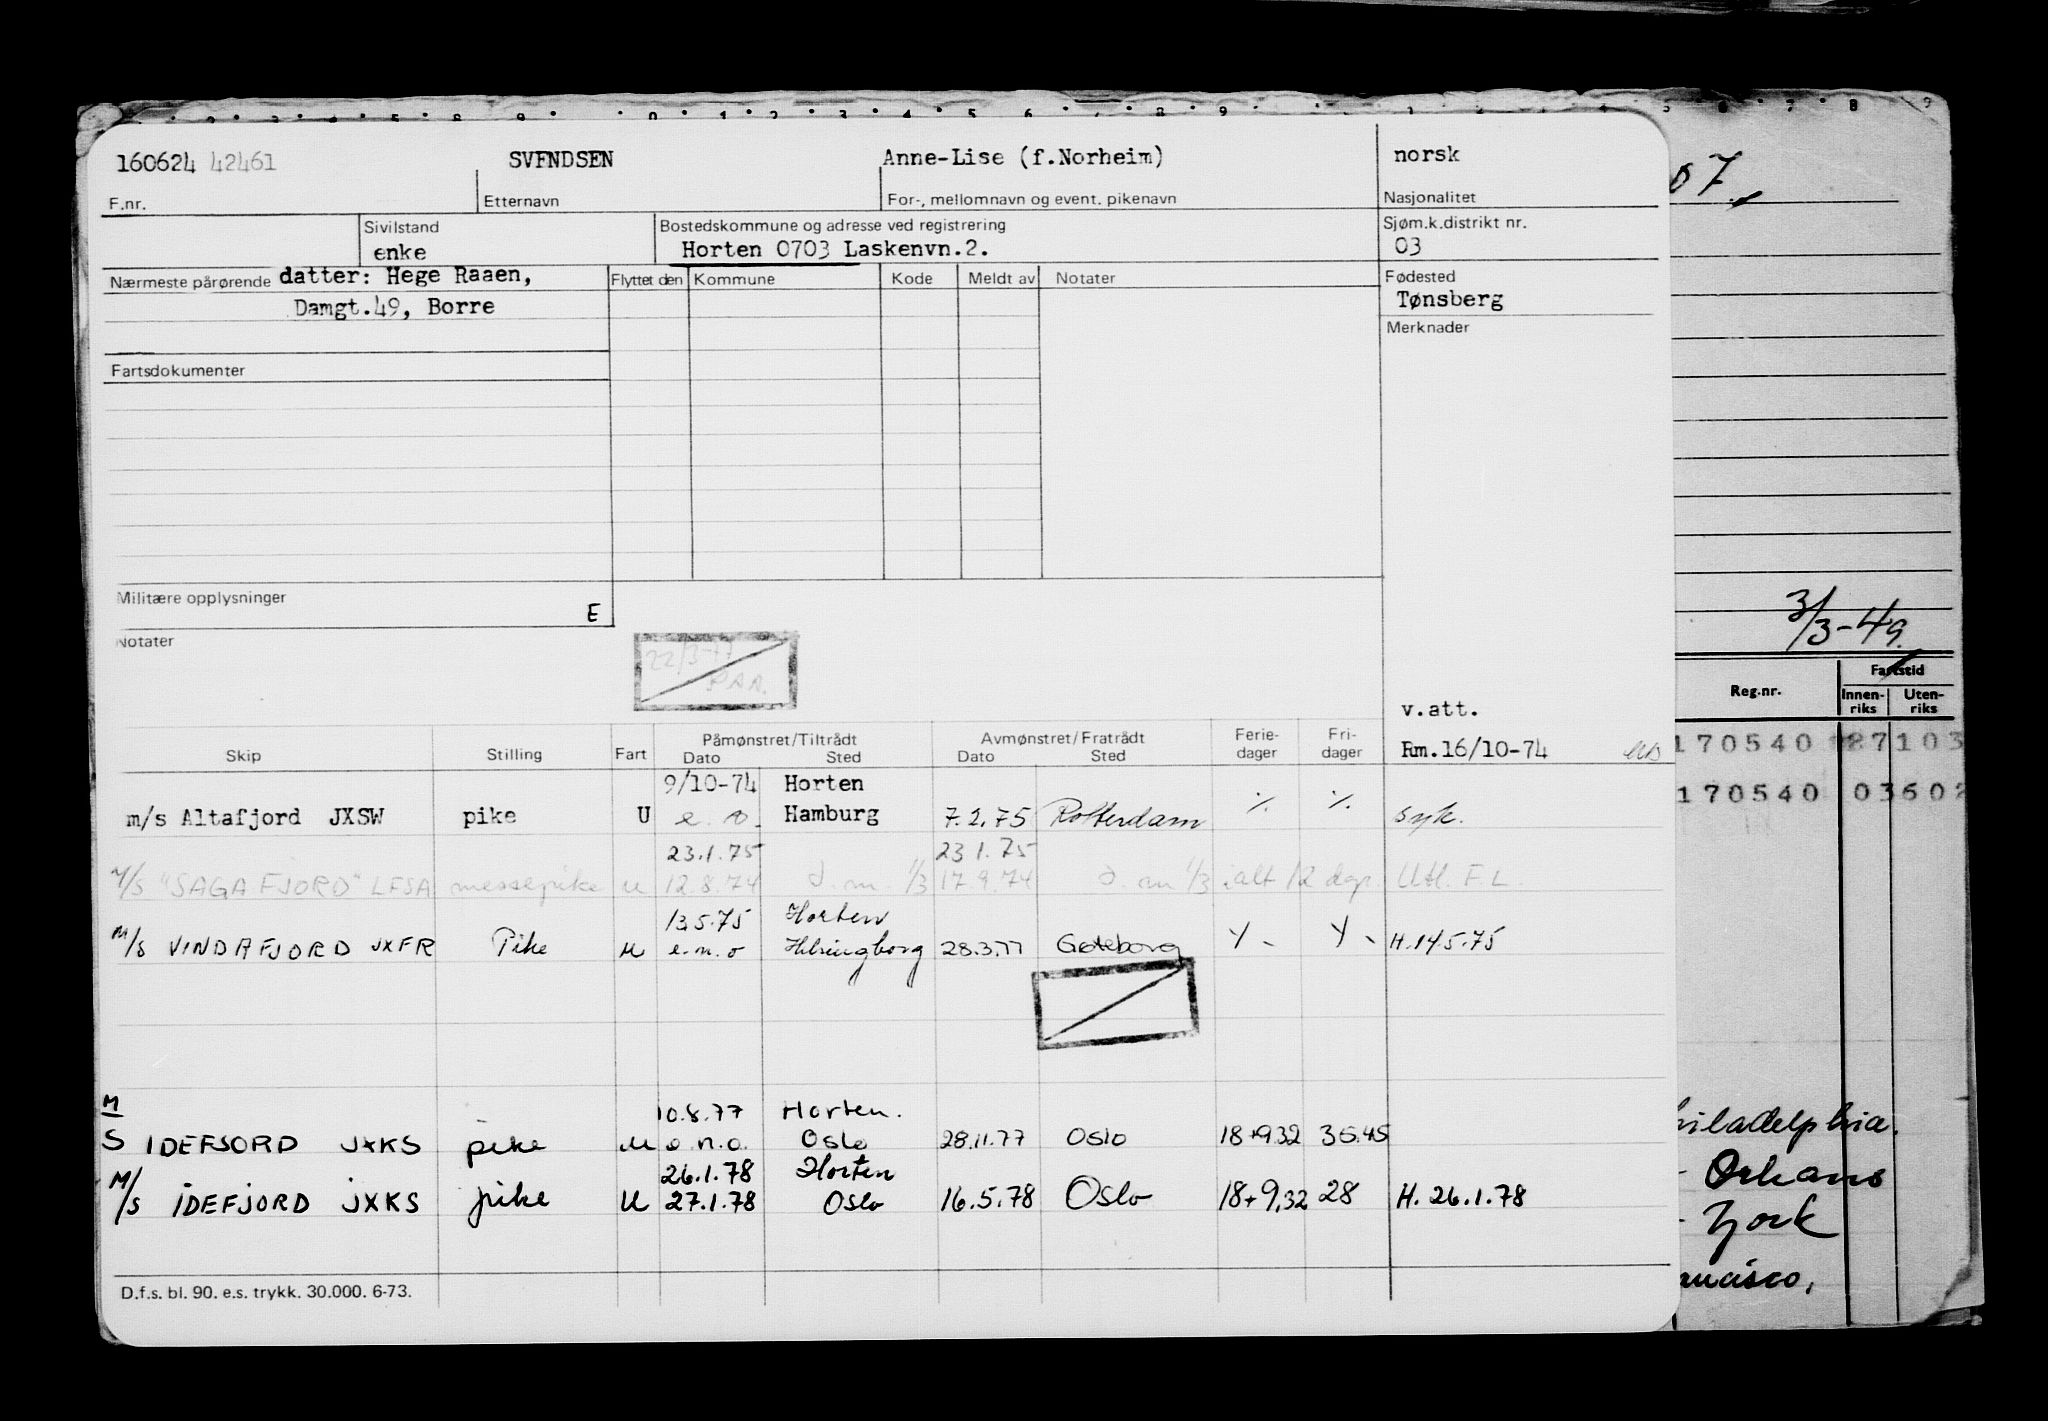 160624 42461 SVENDSEN Anne-Lise (f.Norheim) norsk
F.nr. Etternavn For-, mellomnavn og event. pikenavn Nasjonalitet
Sivilstand Bostedskommune og adresse ved registrering Sjøm.k.distrikt nr.
enke Horten 0703 Laskenvn.2. 03
Nærmeste pårørende datter: Hege Raaen, Flyttet den Kommune Kode Meldt av Notater Fødested
Damgt.49, Borre Tønsberg
Merknader
Fartsdokumenter
Militære opplysninger
E
Notater
22/3-77
PAA.
v.att.
Skip Stilling Fart Påmønstret/Tiltrådt Avmønstret/Fratrådt Ferie- Fri-
Dato Sted Dato Sted dager dager Rm.16/10-74
9/10-74 Horten
m/s Altafjord JXSW pike U e.o. Hamburg 7.2.75 Rotterdam syk.
23.1.75 23.1.75
M/S "SAGAFJORD" LFSA messepike u 12.8.74 d.m. 1/3 17.9.74 d.m 1/3 ialt 12 dgr. Utl. F.L.
13.5.75 Horten
M/S VINDAFJORD JXFR Pike u e.n.o Helsingborg 28.3.77 Gøteborg H.14.5.75
10.8.77 Horten.
M
S IDEFJORD JXKS pike u e.n.o. Oslo 28.11.77 Oslo 18+9,32 36.45
26.1.78 Horten
M/S IDEFJORD JXKS pike U 27.1.78 Oslo 16.5.78 Oslo 18+9,32 28 H. 26.1.78
D.f.s. bl. 90. e.s. trykk. 30.000. 6-73.
07
3/3-49
Reg.nr. Fartstid
Innen- Uten-
riks riks
170540 87103
170540 03602
hiladelphia.
Orleans
York
ancisco,